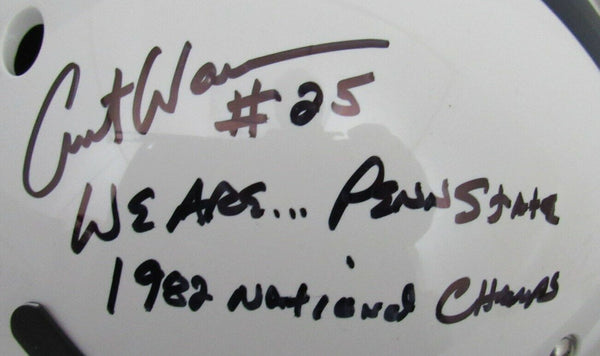 Curt Warner
#25
WE ARE... PENN STATE
1982 NATIONAL CHAMPS